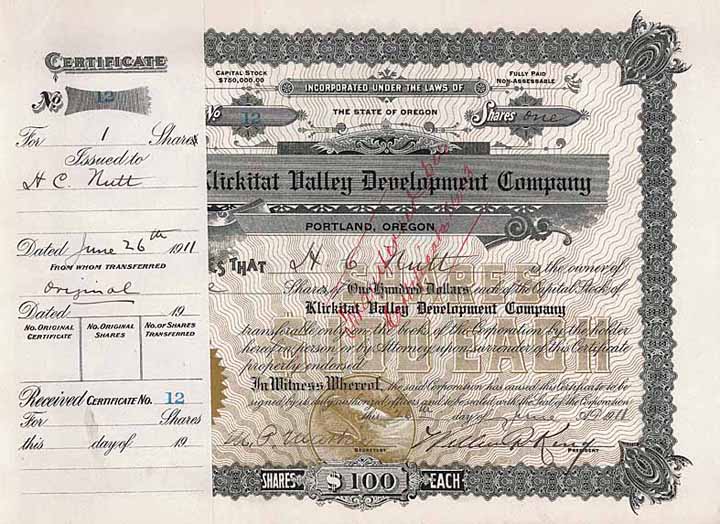 CERTIFICATE
No 12
For 1 Shares
Issued to
H C. Nutt
Dated June 26th 1911
FROM WHOM TRANSFERRED
Original
Dated 19
No. ORIGINAL CERTIFICATE
No. ORIGINAL SHARES
No. OF SHARES TRANSFERRED
Received CERTIFICATE No. 12
For Shares
this day of 19
CAPITAL STOCK
$750,000.00
INCORPORATED UNDER THE LAWS OF
THE STATE OF OREGON
FULLY PAID
NON-ASSESSABLE
No 12
Shares one
Klickitat Valley Development Company
PORTLAND, OREGON
THAT H C Nutt is the owner of
Shares of One Hundred Dollars each of the Capital Stock of
Klickitat Valley Development Company
transferable only on the books of the Corporation by the holder
hereof in person or by Attorney upon surrender of this Certificate
properly endorsed.
In Witness Whereof, the said Corporation has caused this Certificate to be
signed by its duly authorized officers and to be sealed with the Seal of the Corporation
this 26th day of June A.D. 1911
SECRETARY
PRESIDENT
SHARES $100 EACH